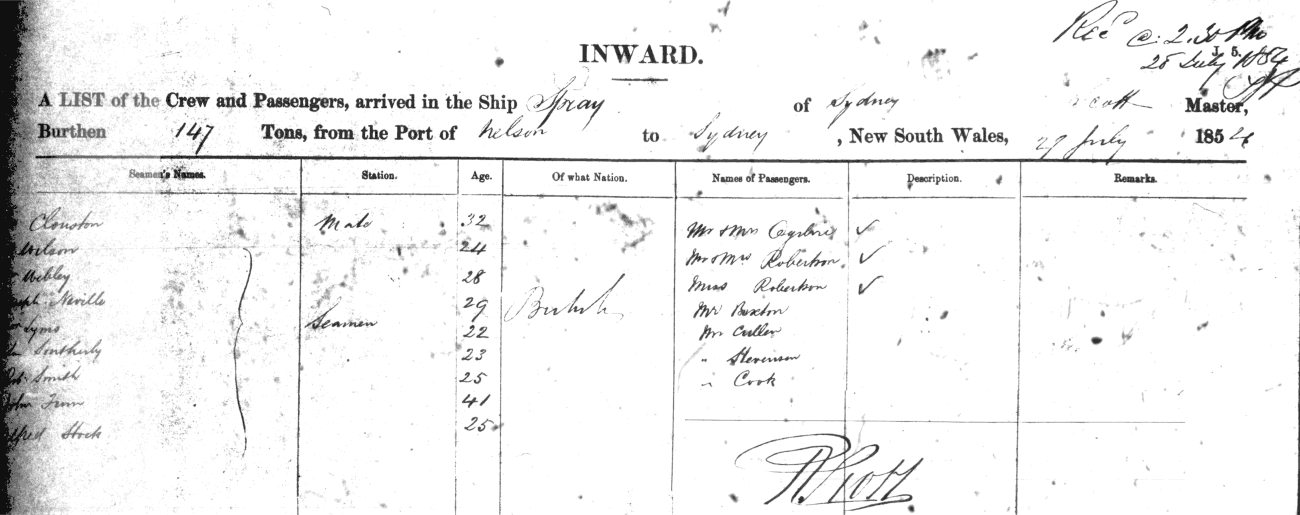 Recd @ 2.30 PM
J. 5.
July 1854
INWARD.
A LIST of the Crew and Passengers, arrived in the Ship Spray of Sydney Scott Master,
Burthen 147 Tons, from the Port of Nelson to Sydney, New South Wales, 29 July 1854
Seamen's Names. Station. Age. Of what Nation. Names of Passengers. Description. Remarks.
Clouston Mate 32 Mr & Mrs ✓
Wilson 24 Mr & Mrs Robertson ✓
Webley 28 Miss Robertson ✓
Neville 29 British Mr Buxton
Lyms Seamen 22 Mr Cullen
Southerly 23 " Stevenson
Smith 25 " Cook
John 41
Alfred Stock 25
R Scott